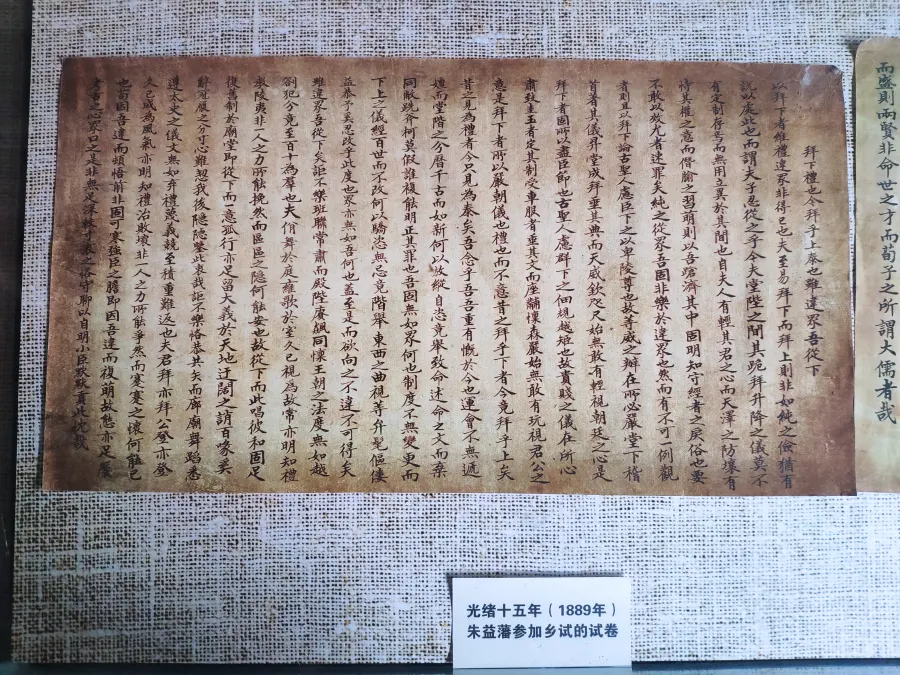 而盛則兩賢非命世之才而荀子之所謂大儒者哉
拜下禮也今拜乎上泰也雖違眾吾從下
以拜下者維禮違眾非得已也夫至易拜下而拜上則非如純之儉猶有
說以處此也而謂夫子忍從之乎今夫堂陛之間其跪拜升降之儀莫不
有定制存焉而無用立異於其間也自夫人有輕其君之心而大澤之防壞有
恃其權之意而僭踰之習萌則以吾蹌濟其中固明知守經者之戾俗也要
不敢以故尤者速罪矣純之從眾吾固非樂於違眾也然而有不可一例觀
者則且以拜下論古聖人慮臣下之以卑陵尊也故等威之辨在所必嚴堂下稽
首者其儀升堂成拜垂其典而天威欽咫尺始無敢有輕視朝廷之心是
拜下者固所以盡臣節也古聖人慮群下之偭規越矩也故貴賤之儀在所必
肅致圭玉者定其制受車服者重其文而座黼懷森嚴始無敢有玩視君公之
意是拜下者所以嚴朝儀也禮也而不意昔之拜乎下者今竟拜乎上矣
昔之見為禮者今只見為泰矣吾念乎吾吾重有慨於今也運會不無遞
嬗而堂階之分曆千古而如新何以故縱自恣竟舉致命述命之文而棄
同敝跣斧柯莫假誰複能明正其罪也吾固無如眾何也制度不無變更而
下上之儀經百世而不改何以驕恣無忌竟階舉東西之曲視等弁髦傴僂
益恭予美忍改乎此度也眾亦無如吾何也蓋至是而欲向之不違不可得矣
雖違眾吾從下矣詎不樂班聯常肅而殿陛賡颺同懷王朝之法度無如越
犯分竟至百十為羣也夫佾舞於庭雍歌於室久已視為故常亦明知禮
教陵夷非一人之力所能挽然而區區之隱何能安也故從下而此唱彼和固足
復舊制於廟堂即從下而一意孤行亦足留大義於天地迂闊之誚百家奚
辭冠履之分寸心難恝我後隱隱鑒此衷我詎不樂恪恭共矢而廊廟舞蹈悉
遵太史之儀文無如弃禮蔑義競至積重難返也夫君拜亦拜公登亦登
久已成為風氣亦明知禮治敗壞非一人之力所能爭然而蹇蹇之懷何能已
也苟因吾違而頓悟前非固可寒強臣之膽即因吾違而復萌故態亦足
之心眾口之是非無足深之恪守聊以自明小臣默默此忱哉
光绪十五年（1889年）
朱益藩参加乡试的试卷